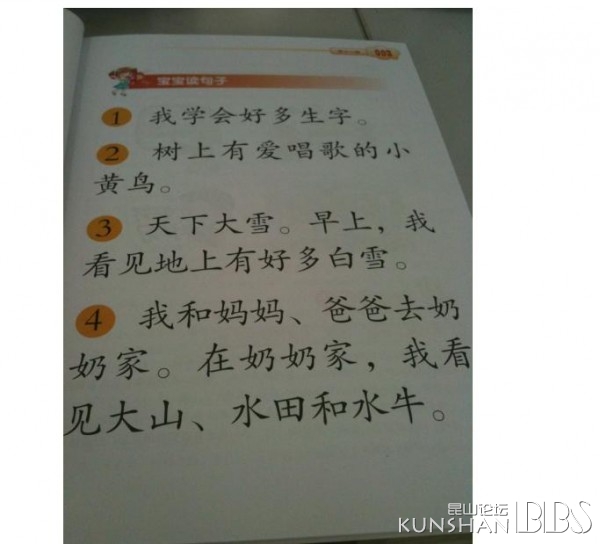 宝宝读句子
1 我学会好多生字。
2 树上有爱唱歌的小
黄鸟。
3 天下大雪。早上，我
看见地上有好多白雪。
4 我和妈妈、爸爸去奶
奶家。在奶奶家，我看
见大山、水田和水牛。
昆山论坛
KUNSHAN BBS